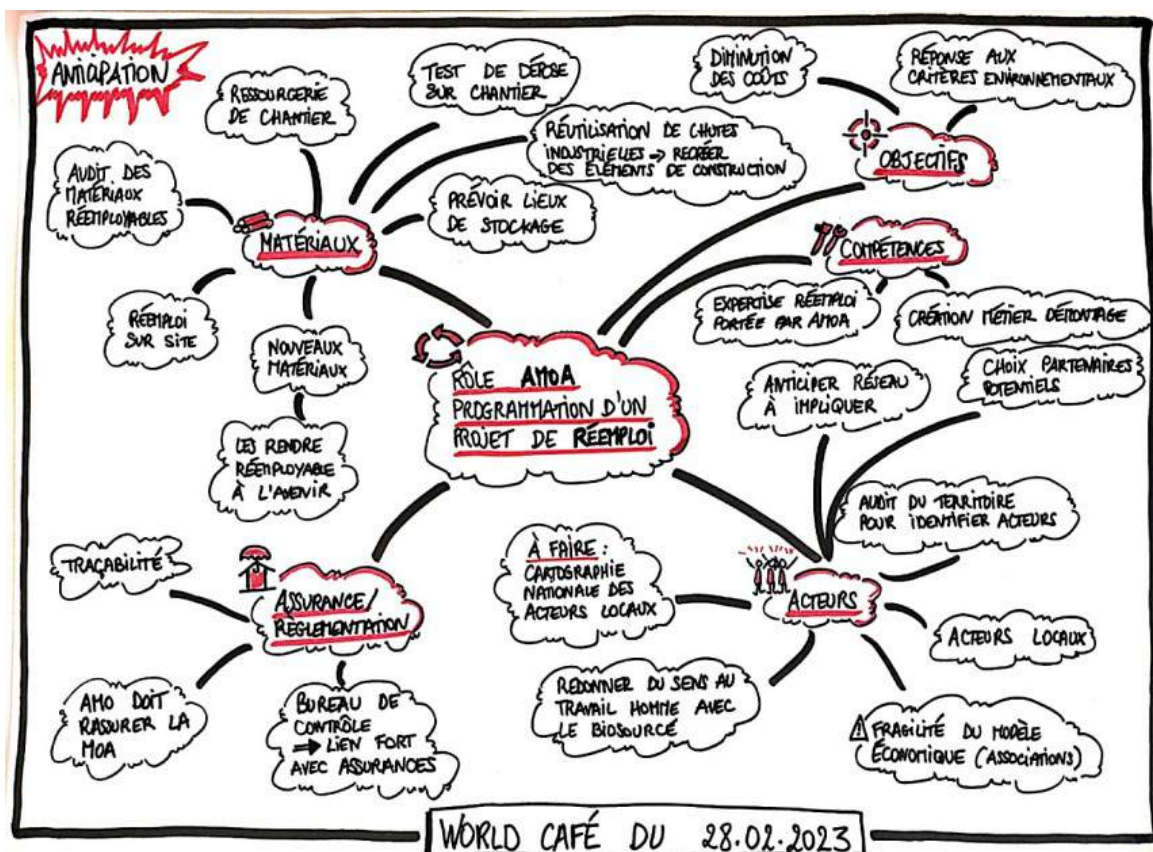 ANTICIPATION
RESSOURGERIE
DE CHANTIER
TEST DE DÉPOSE
SUR CHANTIER
DIMINUTION
DES COÛTS
RÉPONSE AUX
CRITÈRES ENVIRONNEMENTAUX
AUDIT DES
MATÉRIAUX
RÉEMPLOYABLES
RÉUTILISATION DE CHUTES
INDUSTRIELLES → RECRÉER
DES ÉLÉMENTS DE CONSTRUCTION
OBJECTIFS
PRÉVOIR LIEUX
DE STOCKAGE
MATÉRIAUX
COMPÉTENCES
RÉEMPLOI
SUR SITE
NOUVEAUX
MATÉRIAUX
LES RENDRE
RÉEMPLOYABLE
À L'AVENIR
EXPERTISE RÉEMPLOI
PORTÉE PAR AMOA
CRÉATION MÉTIER DÉMONTAGE
RÔLE AMOA
PROGRAMMATION D'UN
PROJET DE RÉEMPLOI
ANTICIPER RÉSEAU
À IMPLIQUER
CHOIX PARTENAIRES
POTENTIELS
AUDIT DU TERRITOIRE
POUR IDENTIFIER ACTEURS
TRAÇABILITÉ
ASSURANCE/
RÈGLEMENTATION
À FAIRE :
CARTOGRAPHIE
NATIONALE DES
ACTEURS LOCAUX
ACTEURS
ACTEURS LOCAUX
AMO DOIT
RASSURER LA
MOA
BUREAU DE
CONTRÔLE
→ LIEN FORT
AVEC ASSURANCES
REDONNER DU SENS AU
TRAVAIL HOMME AVEC
LE BIOSOURCÉ
⚠ FRAGILITÉ DU MODÈLE
ÉCONOMIQUE (ASSOCIATIONS)
WORLD CAFÉ DU 28.02.2023